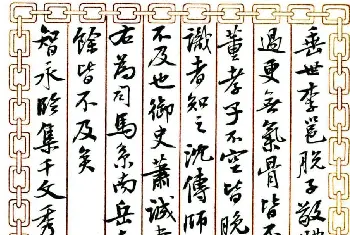 垂世李邕脱子敬體
過更無氣骨皆不
董孝子不空皆晚
識者知之沈傳師
不及也御史蕭誠書
右為司馬系南岳真
餘皆不及矣
智永臨集千文秀